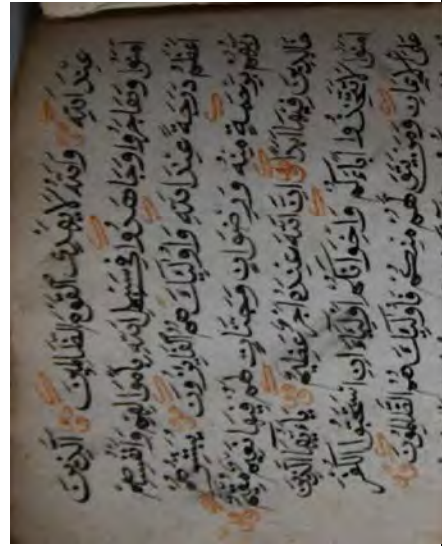 عِنْدَ اللهِ وَاللهُ لَا يَهْدِي الْقَوْمَ الظَّالِمِينَ الَّذِينَ
اٰمَنُوا وَهَاجَرُوا وَجَاهَدُوا فِي سَبِيلِ اللهِ بِاَمْوَالِهِمْ وَاَنْفُسِهِمْ
اَعْظَمُ دَرَجَةً عِنْدَ اللهِ وَاُولٰئِكَ هُمُ الْفَائِزُونَ يُبَشِّرُهُمْ
رَبُّهُمْ بِرَحْمَةٍ مِنْهُ وَرِضْوَانٍ وَجَنَّاتٍ لَهُمْ فِيهَا نَعِيمٌ مُقِيمٌ
خَالِدِينَ فِيهَا اَبَدًا اِنَّ اللهَ عِنْدَهُ اَجْرٌ عَظِيمٌ يَا اَيُّهَا الَّذِينَ
اٰمَنُوا لَا تَتَّخِذُوا اٰبَاءَكُمْ وَاِخْوَانَكُمْ اَوْلِيَاءَ اِنِ اسْتَحَبُّوا الْكُفْرَ
عَلَى الْاِيمَانِ وَمَنْ يَتَوَلَّهُمْ مِنْكُمْ فَاُولٰئِكَ هُمُ الظَّالِمُونَ